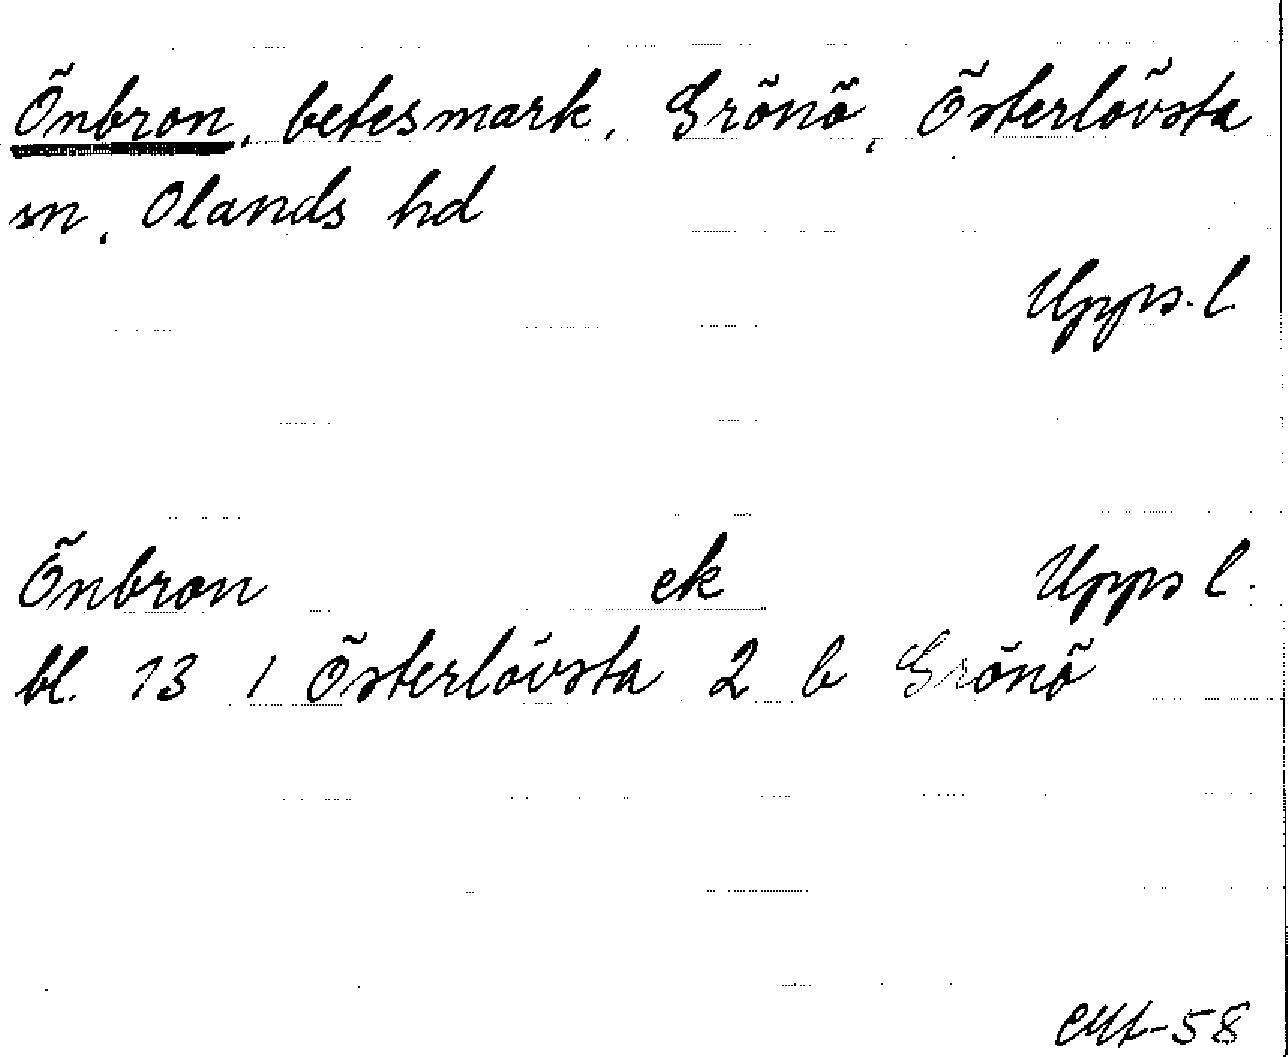 Önbron, betesmark, Grönö, Österlövsta
sn, Olands hd
Upps. l.
Önbron ek Upps l.
bl. 13 1 Österlövsta 2 b Grönö